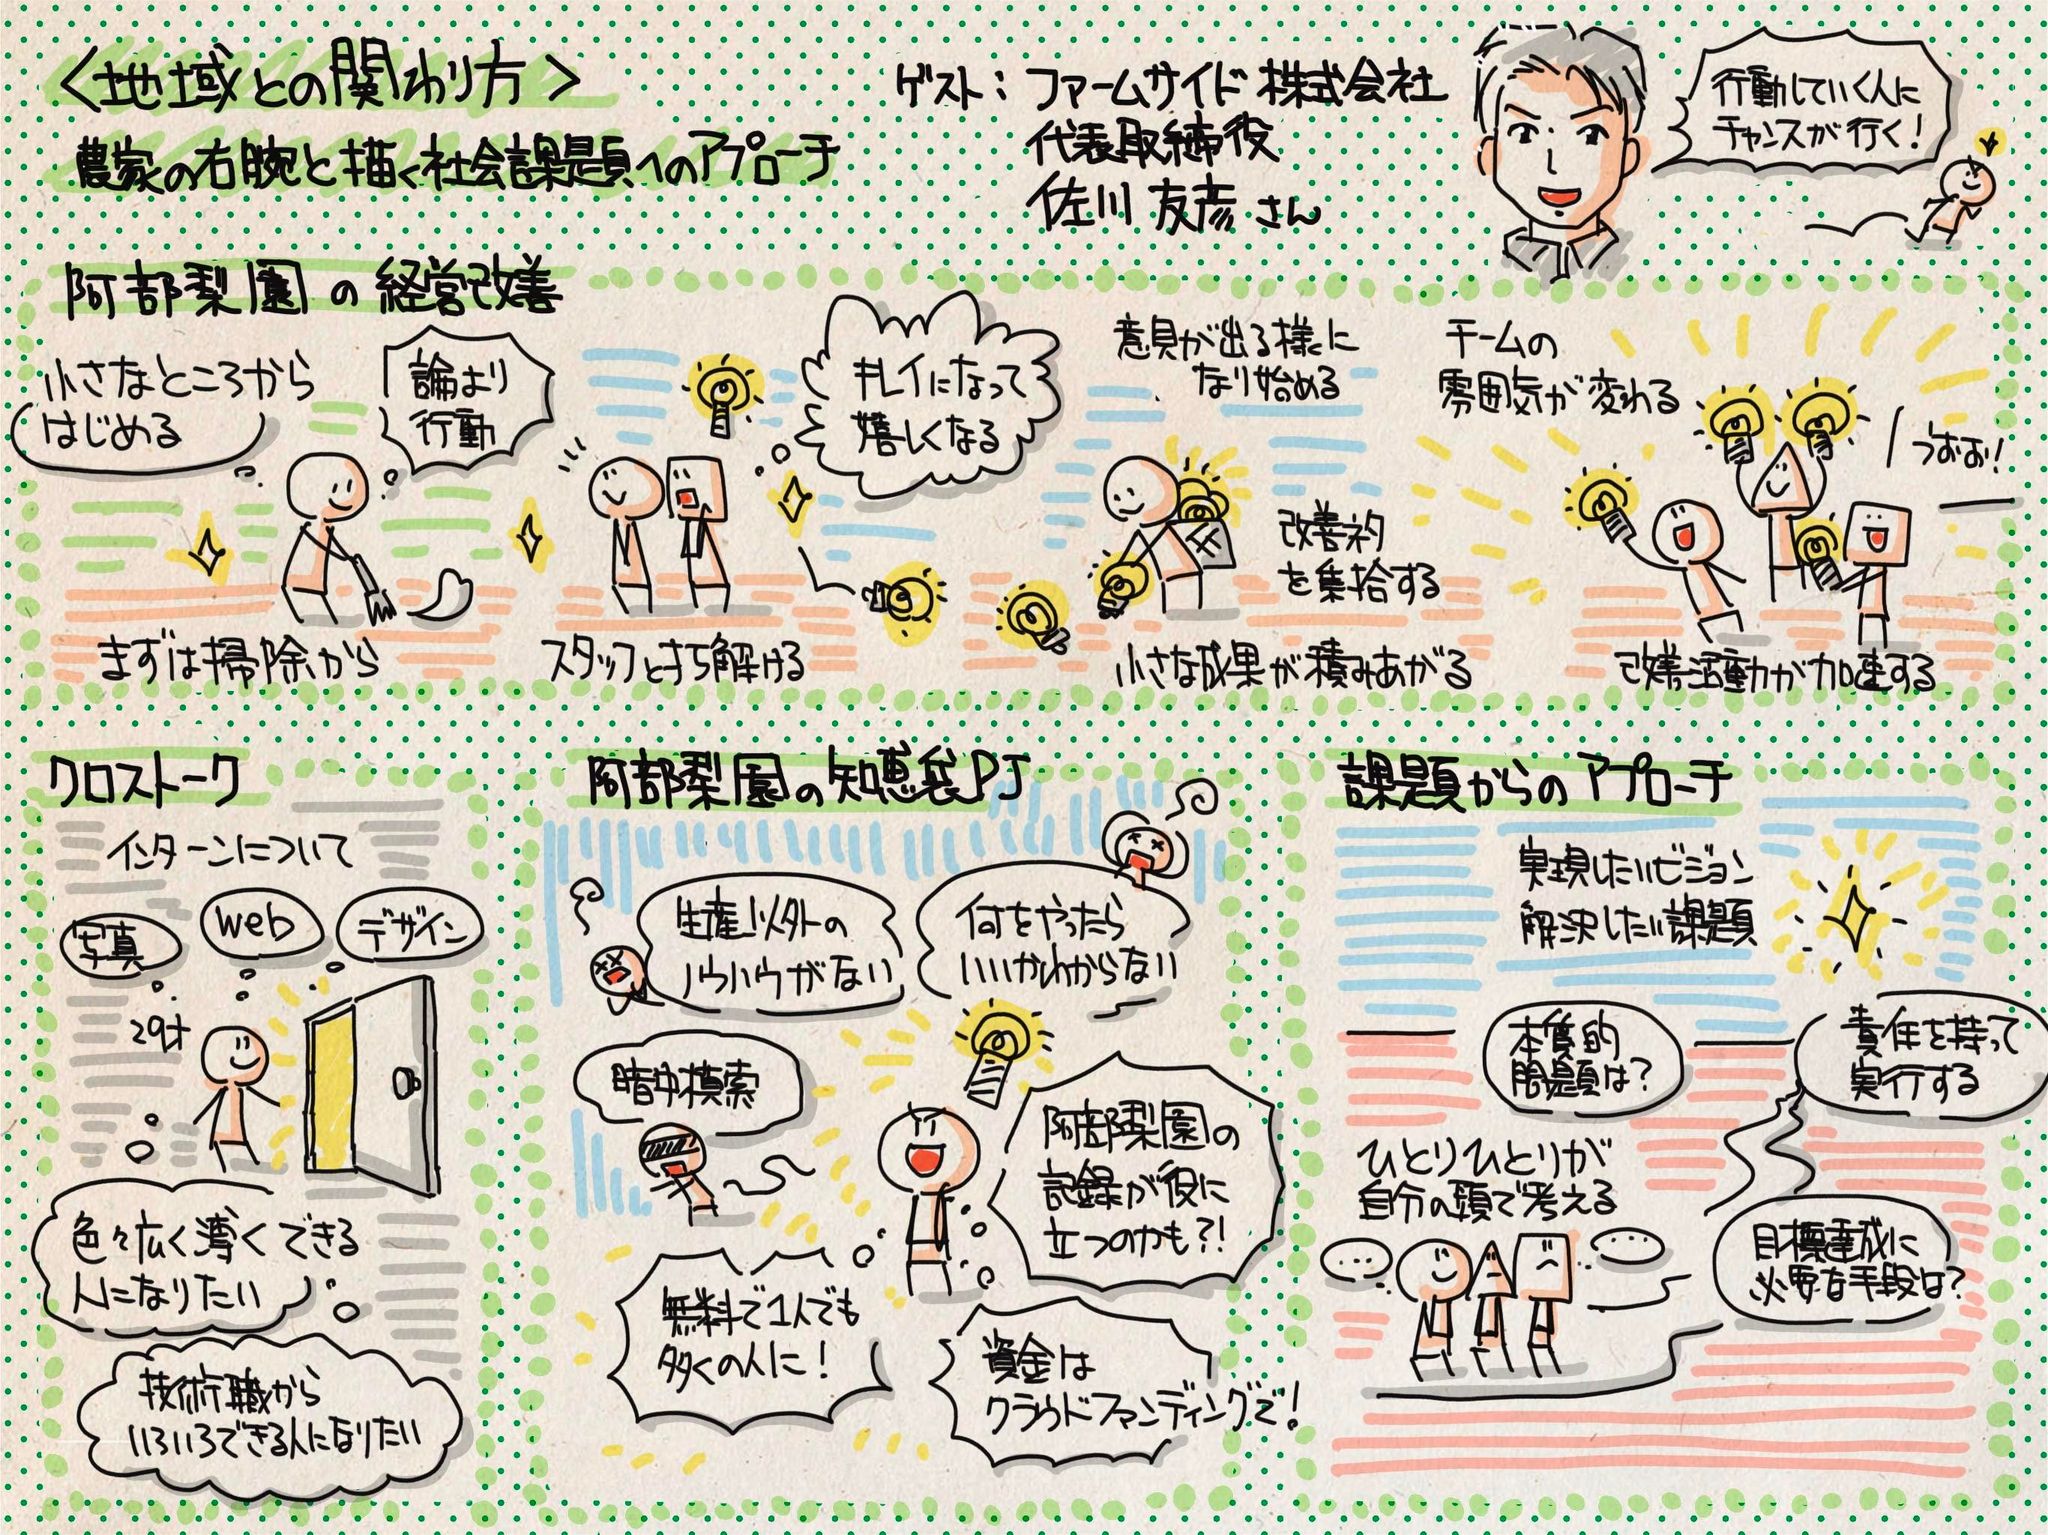 ＜地域との関わり方＞
農家の右腕と描く社会課題へのアプローチ
ゲスト：ファームサイド株式会社
代表取締役
佐川 友彦 さん
行動していく人に
チャンスが行く！
阿部梨園の経営改善
小さなところから
はじめる
論より
行動
まずは掃除から
キレイになって
嬉しくなる
スタッフと打ち解ける
意見が出る様に
なり始める
改善ネタ
を集拾する
小さな成果が積みあがる
チームの
雰囲気が変わる
うおお！
改善活動が加速する
クロストーク
インターンについて
写真
web
デザイン
29才
色々広く薄くできる
人になりたい
技術職から
いろいろできる人になりたい
阿部梨園の知恵袋PJ
生産以外の
ノウハウがない
何をやったら
いいかわからない
暗中模索
阿部梨園の
記録が役に
立つのかも？！
無料で1人でも
多くの人に！
資金は
クラウドファンディングで！
課題からのアプローチ
実現したいビジョン
解決したい課題
本質的
問題は？
責任を持って
実行する
ひとりひとりが
自分の頭で考える
…
…
目標達成に
必要な手段は？